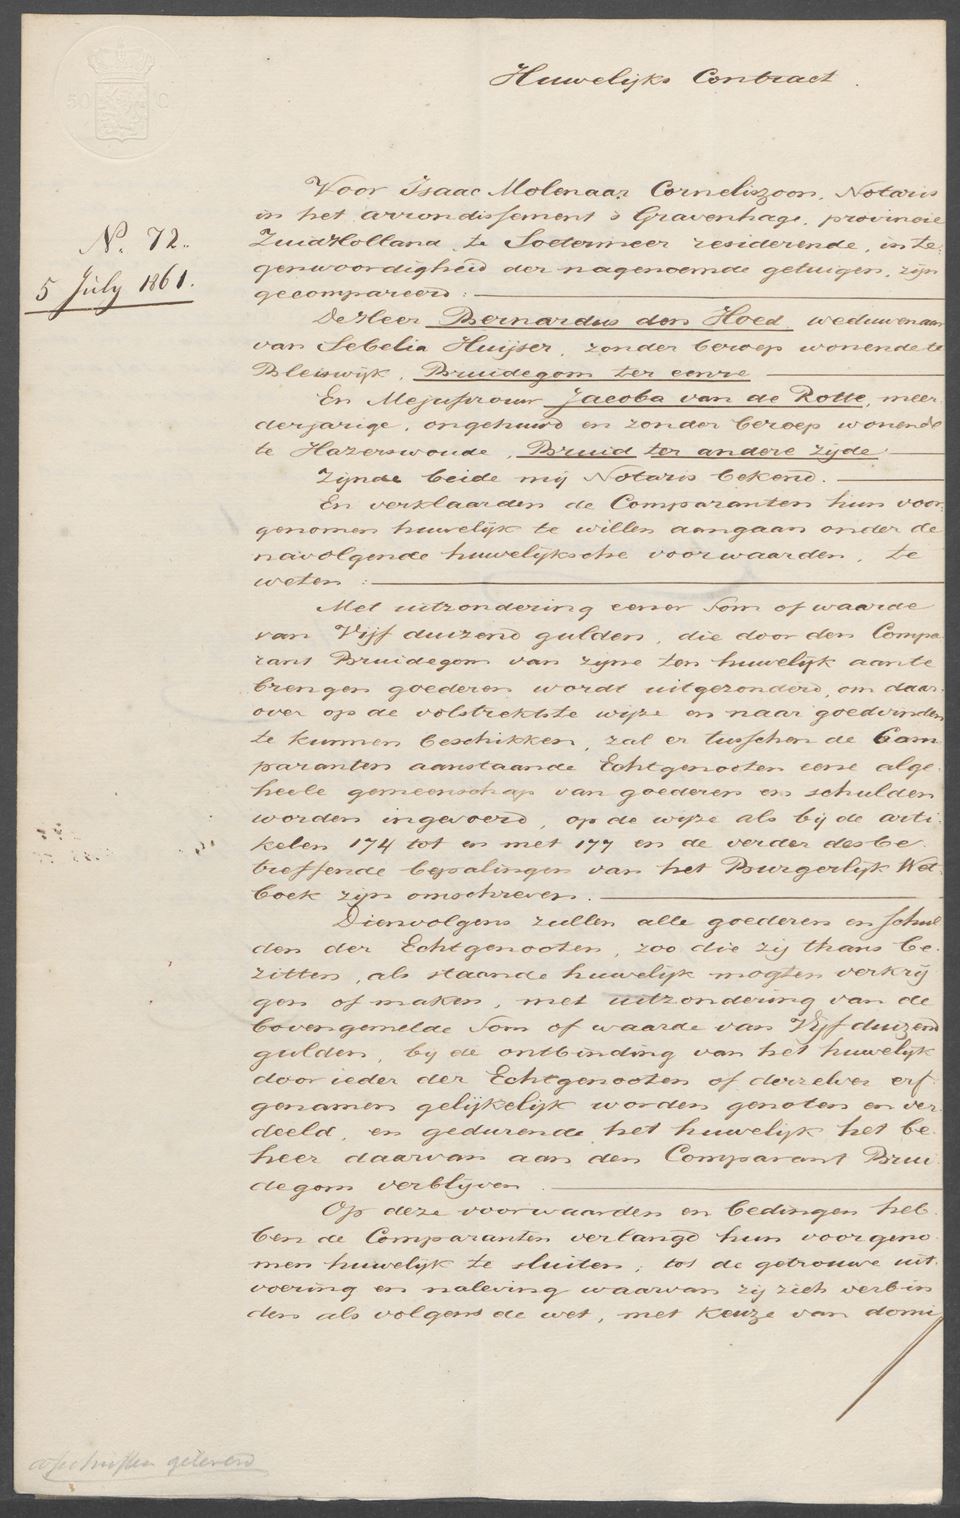 50 C
Huwelijks Contract.
N. 72.
5 July 1861.
Voor Isaac Molenaar Corneliszoon, Notaris
in het arrondissement s Gravenhage, provincie
ZuidHolland, te Soetermeer residerende, in te-
genwoordigheid der nagenoemde getuigen, zijn
gecompareerd:
De Heer Bernardus den Hoed, weduwenaar
van Sebelia Huijser, zonder beroep wonende te
Bleiswijk, Bruidegom ter eenre
En Mejufrouw Jacoba van de Rotte, meer
derjarige, ongehuwd en zonder beroep wonende
te Hazerswoude, Bruid ter andere zijde.
Zijnde beide mij Notaris bekend.
En verklaarden de Comparanten hun voor-
genomen huwelijk te willen aangaan onder de
navolgende huwelijksche voorwaarden, te
weten:
Met uitzondering eener Som of waarde
van Vijf duizend gulden, die door den Compa
rant Bruidegom van zijne ten huwelijk aan te
brengen goederen wordt uitgezonderd, om daar-
over op de volstrektste wijze en naar goedvinden
te kunnen beschikken, zal er tusschen de Com
paranten aanstaande Echtgenooten eene alge-
heele gemeenschap van goederen en schulden
worden ingevoerd, op de wijze als bij de arti-
kelen 174 tot en met 177 en de verder desbe-
treffende bepalingen van het Burgerlijk Wet-
boek zijn omschreven.
Dienvolgens zullen alle goederen en schul
den der Echtgenooten, zoo die zij thans be-
zitten, als staande huwelijk mogten verkrij
gen of maken, met uitzondering van de
bovengemelde Som of waarde van Vijf duizend
gulden, bij de ontbinding van het huwelijk
door ieder der Echtgenooten of derzelver erf-
genamen gelijkelijk worden genoten en ver-
deeld, en gedurende het huwelijk het be-
heer daarvan aan den Comparant Brui
degom verblijven.
Op deze voorwaarden en bedingen heb-
ben de Comparanten verlangd hun voorgeno-
men huwelijk te sluiten; tot de getrouwe uit-
voering en naleving waarvan zij zich verbin
den als volgens de wet, met keuze van domi
afschriften geleverd